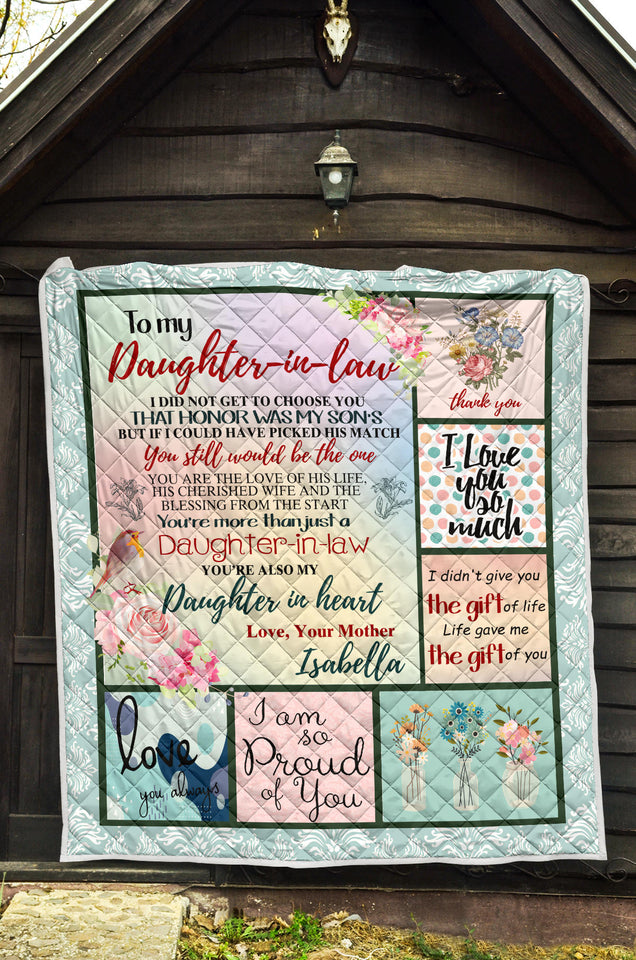 To my
Daughter-in-law
I DID NOT GET TO CHOOSE YOU
THAT HONOR WAS MY SON'S
BUT IF I COULD HAVE PICKED HIS MATCH
You still would be the one
YOU ARE THE LOVE OF HIS LIFE,
HIS CHERISHED WIFE AND THE
BLESSING FROM THE START
You're more than just a
Daughter-in-law
YOU'RE ALSO MY
Daughter in heart
Love, Your Mother
Isabella
thank you
I Love
you
so
much
I didn't give you
the gift of life
Life gave me
the gift of you
love
you always
I am
so
Proud
of You